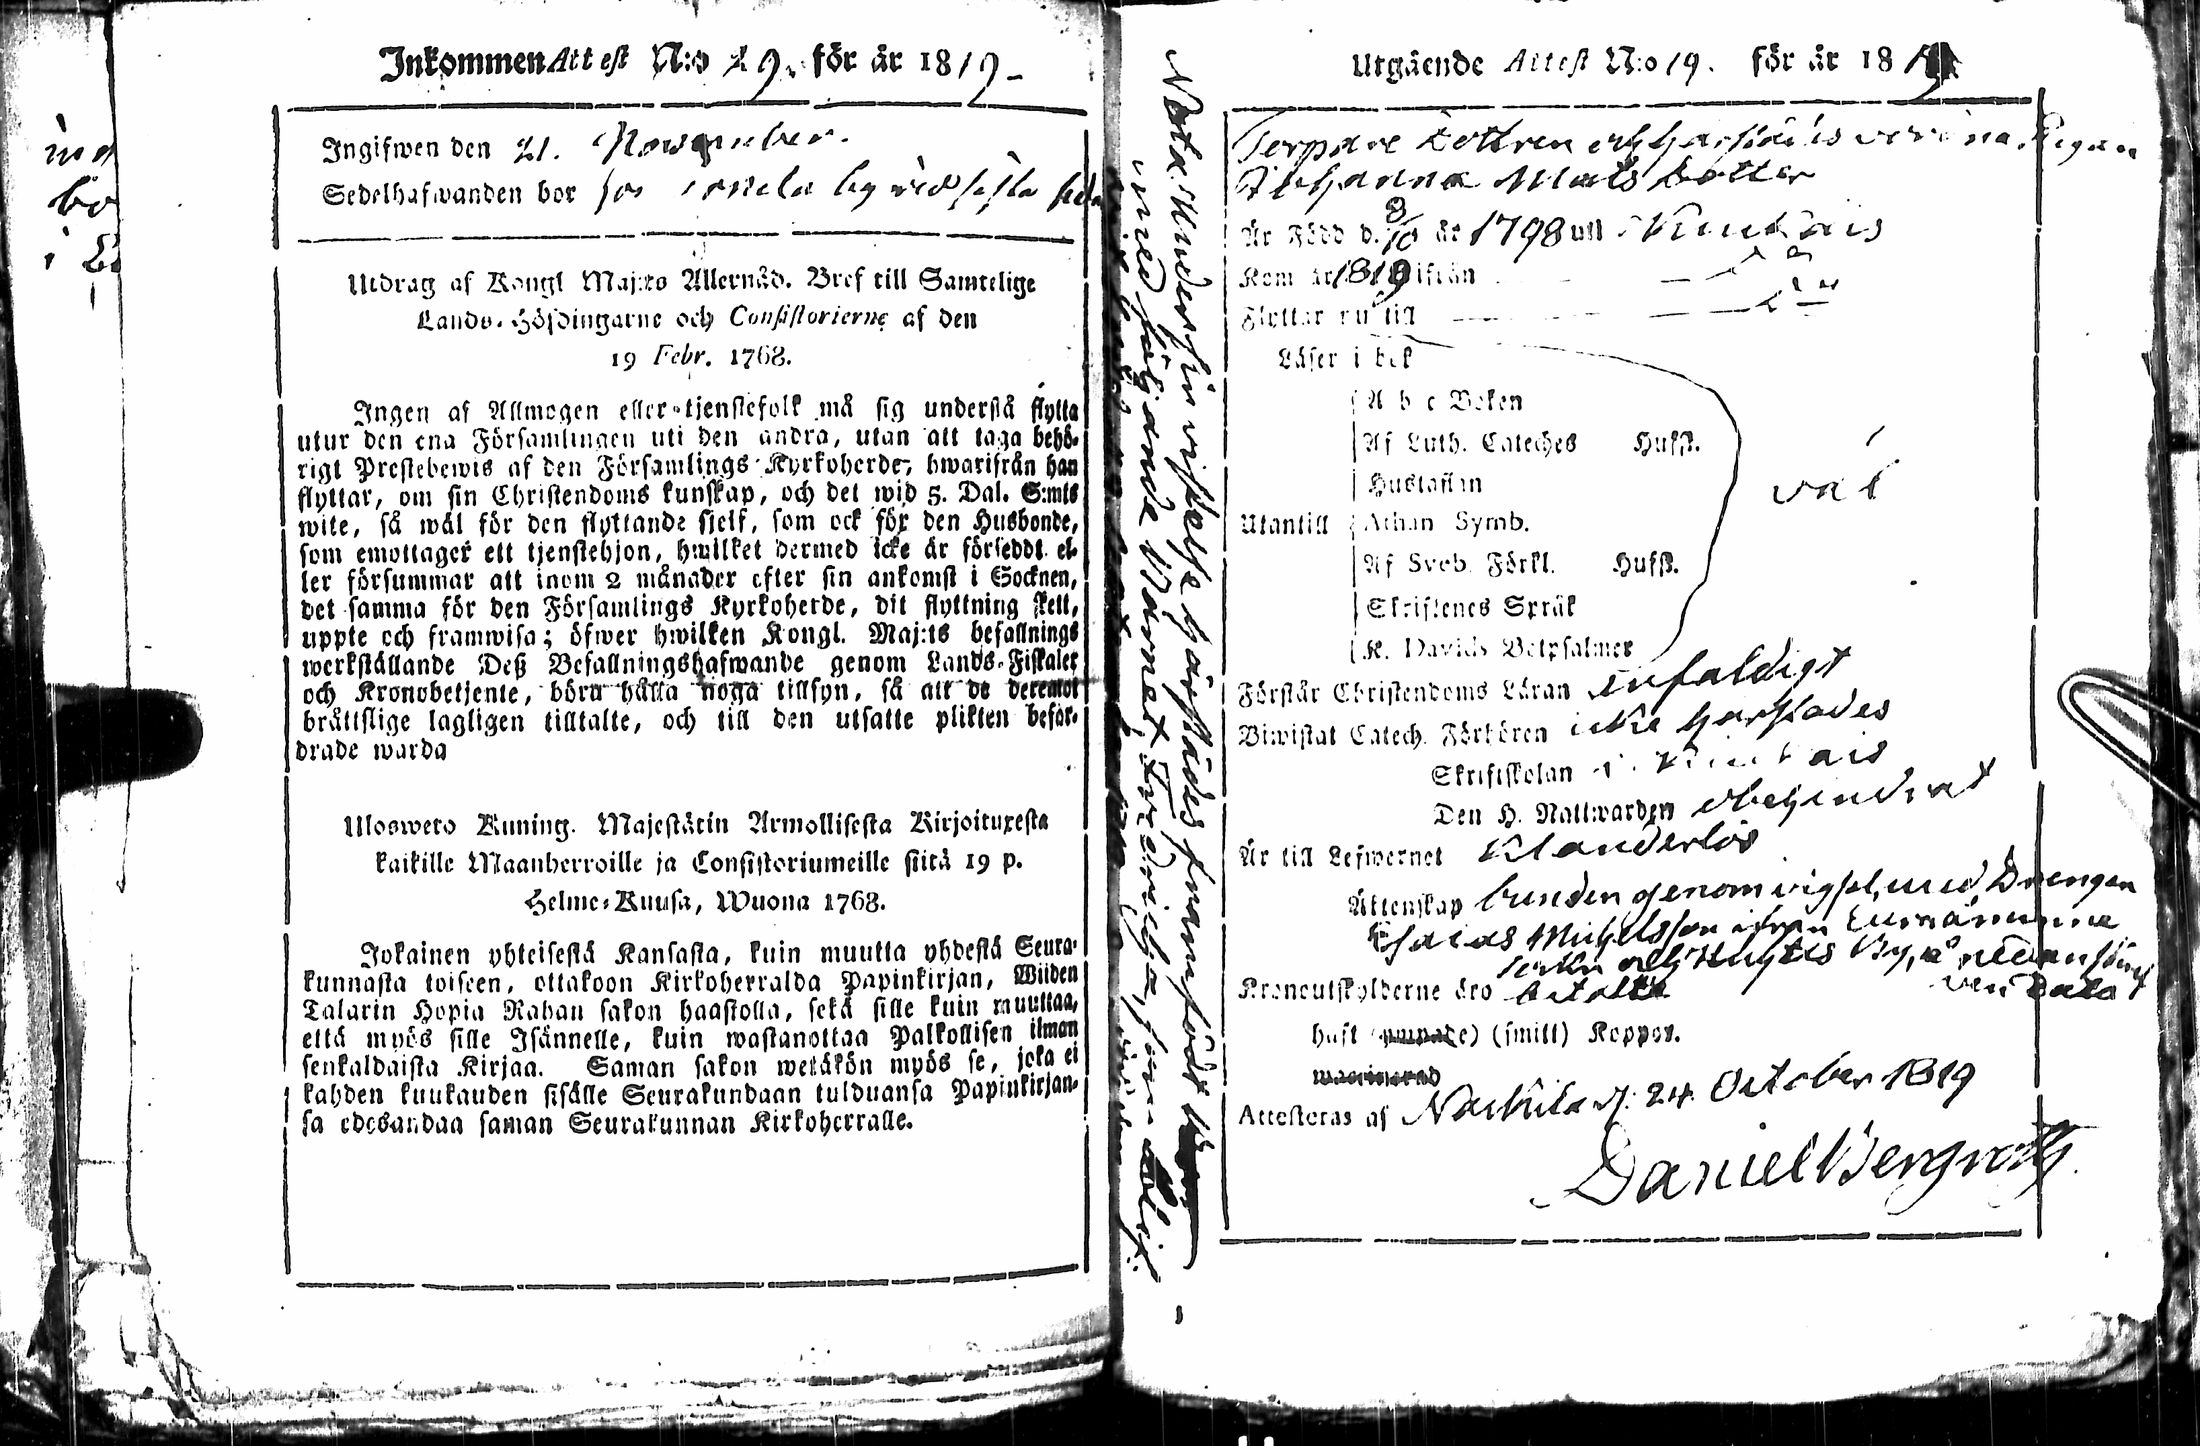 Inkommen Attest N:o 29. för år 1819
Ingifwen den 21. November.
Sedelhafwanden bor hos
Utdrag af Kongl Maj:ts Allernåd. Bref till Samtelige
Lands-Höfdingarne och Consistorierne af den
19 Febr. 1768.
Ingen af Allmogen eller tjenstefolk må sig understå flytta
utur den ena Församlingen uti den andra, utan att taga behö-
rigt Prestebewis af den Församlings Kyrkoherde, hwarifrån han
flyttar, om sin Christendoms kunskap, och det wid 5. Dal. S:mts
wite, så wäl för den flyttande sjelf, som ock för den Husbonde,
som emottager ett tjenstehjon, hwilket dermed icke är försedt el-
ler försummar att inom 2 månader efter sin ankomst i Socknen,
det samma för den Församlings Kyrkoherde, dit flyttning skett,
uppte och framwisa; öfwer hwilken Kongl. Maj:ts befallnings
werkställande Deß Befallningshafwande genom Lands-Fiskaler
och Kronobetjente, böra hålla noga tillsyn, så att de deremot
bråttslige lagligen tilltalte, och till den utsatte plikten befor-
drade warda
Uloswero Kuning. Majestätin Armollisesta Kirjoituxesta
kaikille Maanherroille ja Consistoriumeille siitä 19 p.
Helme-Kuusa, Wuona 1768.
Jokainen yhteisestä Kansasta, kuin muutta yhdestä Seura-
kunnasta toiseen, ottakoon Kirkoherralda Papinkirjan, Wiiden
Talarin Hopia Rahan sakon haastolla, sekä sille kuin muuttaa,
että myös sille Isännelle, kuin wastanottaa Palkollisen ilman
senkaldaista Kirjaa. Saman sakon wetäkön myös se, joka ei
kahden kuukauden sisälle Seurakundaan tulduansa Papinkirjan-
sa edesandaa saman Seurakunnan Kirkoherralle.
Nota. Under sin vistelse härstädes framfödt
med följande Barnet Fredrica,
Utgående Attest N:o 19. för år 1819
Johanna Mats Dotter
Är Född d. 8/10 år 1798 uti
Kom år 1819 ifrån
Flyttar nu till
Läser i bok
A b c Boken
Af Luth. Cateches Hufst.
Hustaflan
Utantill Athan Symb.
Af Sveb. Förkl. Hufst.
Skriftenes Språk
K. Davids Botpsalmer
väl
Förstår Christendoms Läran enfaldigt
Biwistat Catech. Förhören icke härstädes
Skriftskolan i
Den H. Nattwarden obehindrat
Är till Lefwernet Klanderlös
Ättenskap bunden genom vigsel med Drengen
Esaias Michelsson ifrån
By, å nedanskrifne
Kronoutskylderne äro betalte
dato
haft (ympade) (smitt) Koppor.
waccinerad
Attesteras af Nackila d. 24 October 1819
Daniel Bergroth